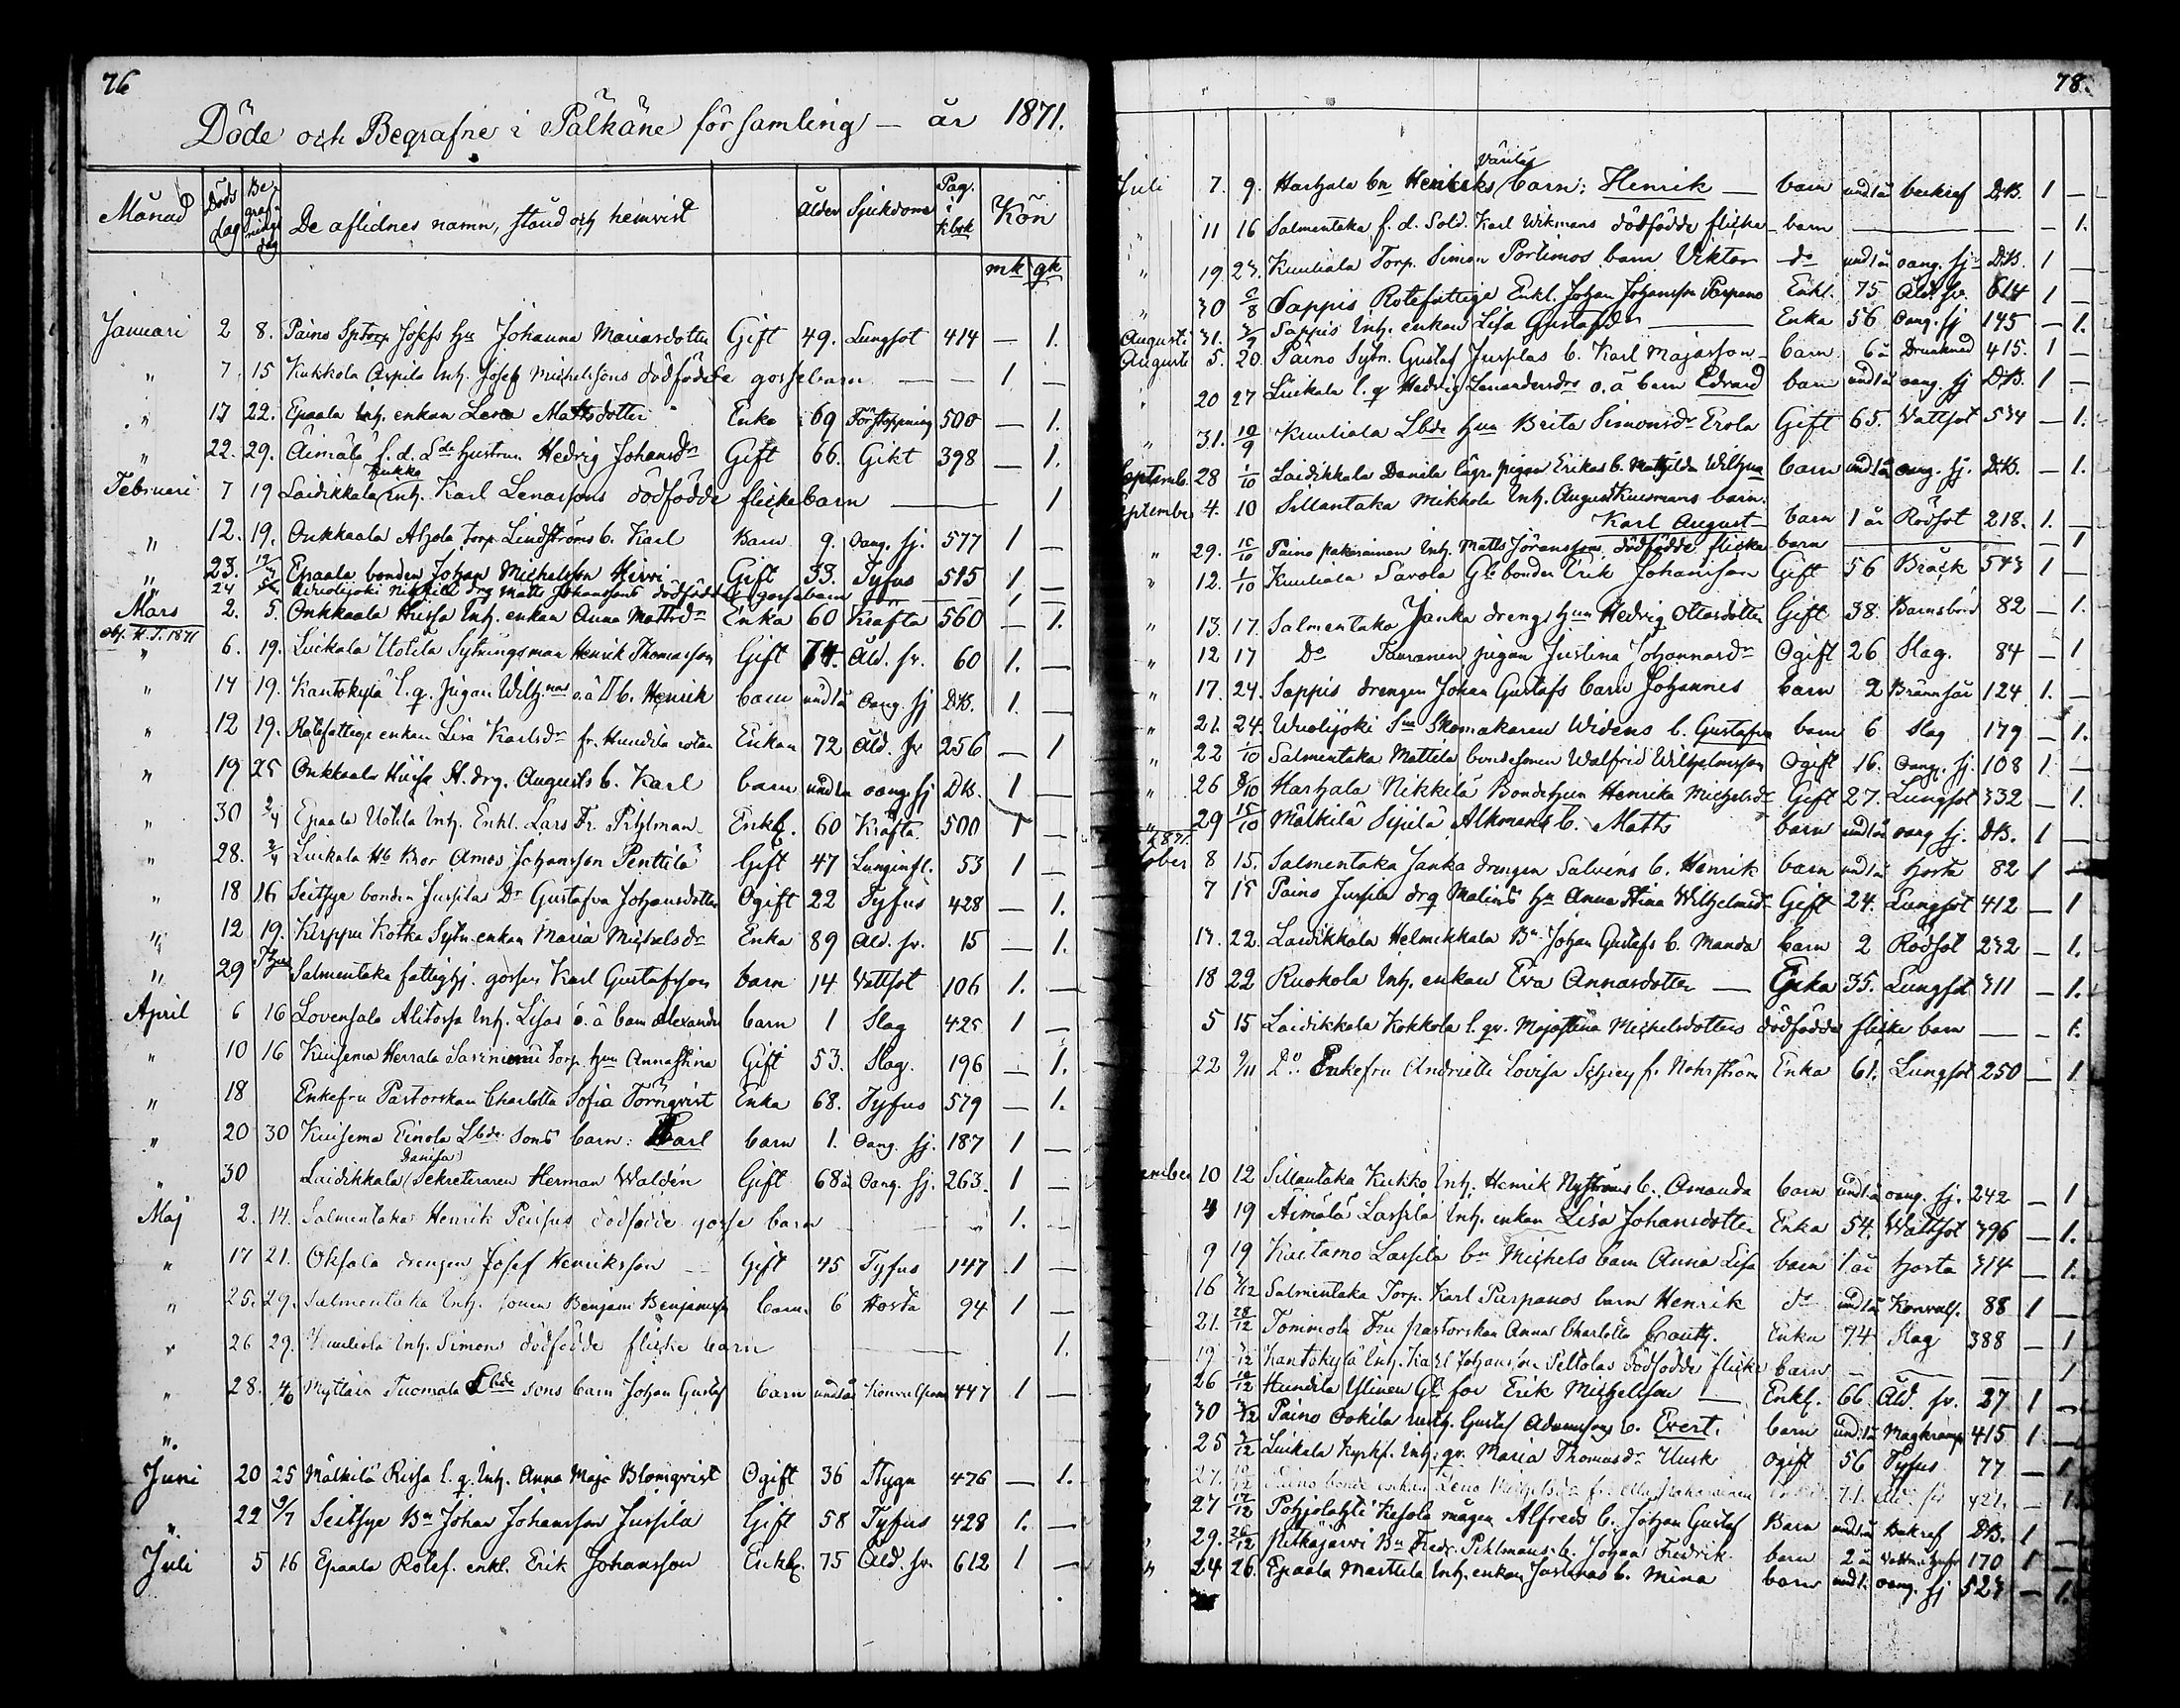 76
Döde och Begrafne i Pälkäne församling — år 1871.
Månad Döds dag Begrafnings dag De aflidnes namn, stånd och hemvist Ålder Sjukdom Pag. i K.bok Kön
mk gk
Januari 2 8. Paino Johanna Mariasdotter Gift 49. Lungsot 414 — 1.
" 7 15 Kukkola Inh. Josef Michelssons dödfödde gossebarn — — 1 —
" 17 22. Epaala Inh. enkan Lena Mattsdotter Enka 69 Förstoppning 500 — 1.
" 22. 29. Äimälä f. d. Hustrun Hedvig Johansdr Gift 66. Gikt 398 — 1.
Kukko
Februari 7 19 Laidikkala Inh. Karl Lenassons dödfödde flickebarn — 1
" 12. 19. Onkkaala Ahola torp. Lindströms b. Karl Barn 9. Oang. sj. 577 1 —
" 23. 12/3 Epaala bonden Johan Michelsson Hirvi Gift 33. Tyfus 515 1 —
" 24 Nikkilä drg Matts Johanssons dödfödde gossebarn — 1 —
Mars 2. 5. Onkkaala Huisa Inh. enkan Anna Mattsdr Enka 60 Kräfta 560 — 1.
" 6. 19. Luikala Uotila Sytningsman Henrik Thomasson Gift 74. Åld. sv. 60 1. —
" 14 19. Kantokylä l. q. pigan o. ä b. Henrik barn und 1 år Oang. sj D.B. 1. —
" 12 19. Rotefattige enkan Lisa Karlsdr fr. Hundila rotan Enkan 72 Åld. sv 256 — 1
" 19 25 Onkkaala Huisa St. drg. Augusts b. Karl barn und 1 år oang. sj D.B. 1 —
" 30 2/4 Epaala Uotila Inh. Enkl. Lars Fr. Pihlman Enkl. 60 Kräfta 500 1 —
" 28. 2/4 Luikala Bror Amos Johansson Penttilä Gift 47 Lunginfl. 53 1 —
" 18 16 Seitsye bonden Jussilas Dr Gustafva Johansdotter Ogift 22 Tyfus 428 — 1.
" 12 19. Kirppu Kotka Sytn. enkan Maria Michelsdr Enka 89 Åld. sv. 15 — 1.
" 29 Salmentaka fattighj. gossen Karl Gustafsson barn 14 Vattsot 106 1. —
April 6 16 Lovensalo Alitorpa Inh. Lisas o. ä barn Alexander barn 1 Slag 425 1 —
" 10 16 Kuisema Herrala torp. hun Anna Stina Gift 53. Slag. 196 — 1.
" 18 Enkefru Pastorskan Charlotta Sofia Törnqvist Enka 68. Tyfus 579 — 1.
" 20 30 Kuisema Einola Lbde. sons barn: Karl barn 1. Oang. sj. 187 1 —
Danila
" 30 Laidikkala Sekreteraren Herman Waldén Gift 68 år Oang. sj. 263. 1 —
Maj 2. 14. Salmentaka Henrik dödfödde gosse barn — 1. —
" 17 21. Olsala drengen Josef Henriksson Gift 45 Tyfus 147 1 —
" 25. 29. Salmentaka Inh. sonen Benjam Benjamsson barn 6 Hosta 94 1 —
" 26 29. Kuuliala Inh. Simons dödfödde flicke barn — 1.
" 28. 4/6 Myttäälä Tuomala Lbde sons barn Johan Gustaf barn und 1 år 447 1 —
".
Juni 20 25 Mälkilä Rissa l. q. Inh. Anna Maja Blomqvist Ogift 36 Stygn 476 — 1.
" 22 9/7 Seitsye Bn Johan Johansson Jussila Gift 58 Tyfus 428 1. —
Juli 5 16 Epaala Rotef. enkl. Erik Johansson Enkl. 75 Åld. sv. 612 1 —
78.
Juli 7. 9. Harhala bn Henriks barn: Henrik — barn und 1 år D.B. 1 —
" 11 16 Salmentaka f. d. Sold. Karl Wikmans dödfödde flicke barn — — 1.
" 19 23. Kuuliala Torp. Simon Portimos barn Viktor do und 1 år oang. sj D.B. 1 —
" 30 6/8 Sappis Rotefattige Enkl. Johan Johansson Parpano Enkl. 75 Åld. sv. 614 1 —
Augusti 31. Sappis Inh. enkan Lisa Gustafsdr — Enka 56 Oang. sj 145 — 1.
Augusti 5. 20. Paino Sytn. Gustaf Jussilas b. Karl Majasson barn 6 år Drunknad 415. 1 —
" 20 27 Luikala l. q Hedvig Lenandersdrs o. ä barn Edvard barn und 1 år oang. sj D.B. 1 —
" 31. 10/9 Kuuliala Lbde hun Brita Simonsdr Erola Gift 65. Vattsot 534 — 1.
Septemb. 28 1/10 Laidikkala Danila pigan Erikas b. Mathilda barn und 1 år oang. sj. D.B. — 1.
September 4. 10 Sillantaka Mikkola Inh. August Kuusmans barn:
Karl August — barn 1 år Rödsot 218. 1. —
" 29. 15/10 Paino Inh. Matts Jöranssons dödfödde flicke barn — — 1
" 12. 1/10 Kuuliala Savola bonden Erik Johansson Gift 56 Bråck 543 1 —
" 13. 17. Salmentaka Janka drengs hun Hedvig Ottosdotter Gift 38. Barnsbörd 82 — 1.
" 12 17 Do Tauranen pigan Justina Johannasdr Ogift 26 Slag. 84 — 1
" 17. 24. Sappis drengen Johan Gustafs barn Johannes barn 2 Brännsår 124 1. —
" 21. 24. Wuolijoki Skomakaren Widens b. Gustafva barn 6 Slag 179 — 1.
" 22 1/10 Salmentaka Mattila bondesonen Walfrid Wilhelmsson Ogift 16. Oang. sj. 108 1 —
" 26 8/10 Harhala Nikkilä Bondehun Henrika Michelsdr Gift 27. Lungsot 332 — 1.
" 29 15/10 Mälkilä Sipilä Alkmans b. Matts barn und 1 år oang sj. D.B. 1 —
1871.
tober 8 15. Salmentaka Janka drengen Salvéns b. Henrik barn und 1 år Hosta 82 1 —
7 15 Paino Jussila drg Malins hu Anna Stina Wilhelmsdr Gift 24. Lungsot 412 — 1
13. 22. Laidikkala Helmikkala Bn Johan Gustafs b. Manda barn 2 Rödsot 232 — 1.
18 22 Ruokola Inh. enkan Eva Annasdotter — Enka 35. Lungsot 311 — 1.
5 15 Laidikkala Kokkola l. qv. Maja Stina Michelsdotters dödfödde flicke barn — — 1.
22 Do. Enkefru Andriette Lovisa f. Nohrström Enka 61. Lungsot 250 — 1
ember 10 12 Sillantaka Kukko Inh. Henrik Nyströms b. Amanda barn und 1 år oang. sj. 242 — 1
4 19 Äimälä Lassila Inh. enkan Lisa Johansdotter Enka 54. Wattsot 396 — 1.
9 19 Kaitamo Lassila bn Michels barn Anna Lisa barn 1 år Hosta 314 — 1.
16 3/12 Salmentaka Torp. Karl Parpanos barn Henrik do und 1 år Konvuls. 88 1 —
21. 28/12 Tommola Fru pastorskan Anna Charlotta Enka 74. Slag 388 — 1
19 Kantokylä Inh. Karl Johansson Peltolas dödfödde flicke barn — — 1
26 Hundila Ylinen far Erik Michelsson — Enkl. 66 Åld. sv. 27 1 —
30 Paino Ookila Inh. Gustaf Adamssons b. Evert. barn und 1 år Magkramp 415 1 —
25 3/12 Luikala Kyrkf. Inh. qv. Maria Thomasdr Uusk Ogift 56 Tyfus 77 — 1
27. Paino bonde enkan Lena 71. Åld. sv 421. — 1.
27 17/12 Pohjalahti Kesola mågen Alfreds b. Johan Gustaf Barn und 1 år D.B. 1 —
29. 26/12 Pitkäjärvi Bn Fredr. Pihlmans b. Johan Fredrik barn 2 år 170 1 —
" 24 26. Epaala Marttila Inh. enkan Justinas b. Mina barn und 1. oang. sj 523 — 1.